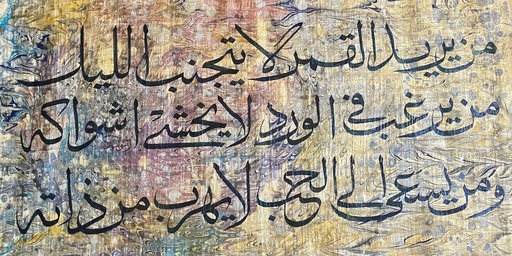 من يريد القمر لا يتجنب الليل
من يرغب في الورد لا يخشى اشواكه
ومن يسعى الى الحب لا يهرب من ذاته